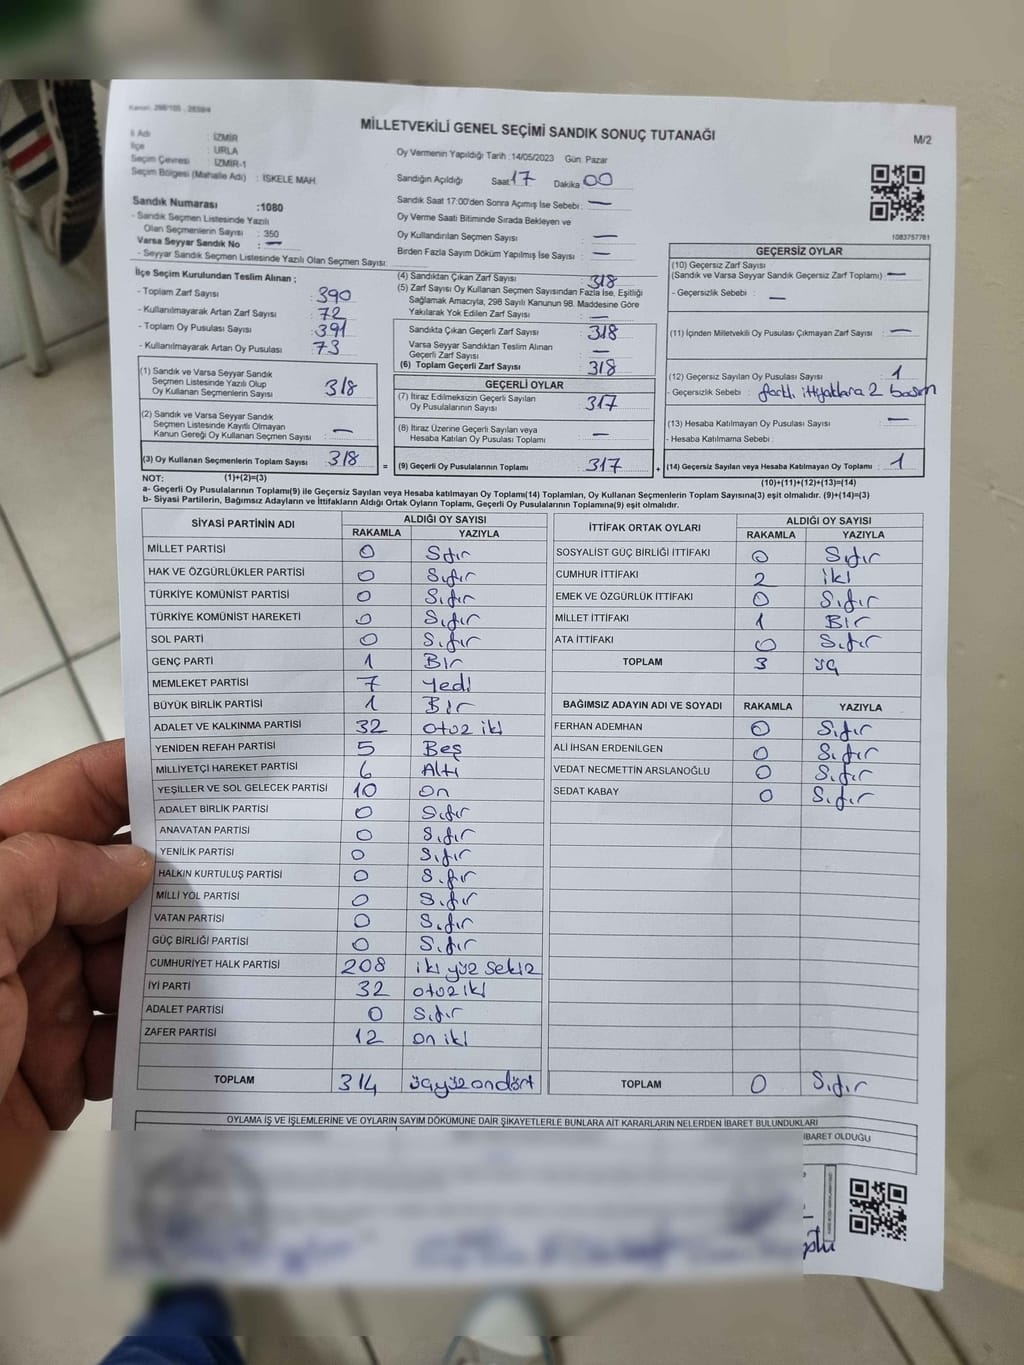 Kanun: 298/105 , 2839/4
MİLLETVEKİLİ GENEL SEÇİMİ SANDIK SONUÇ TUTANAĞI
M/2
İl Adı : İZMİR
İlçe : URLA
Seçim Çevresi : İZMİR-1
Seçim Bölgesi (Mahalle Adı) : İSKELE MAH.
Oy Vermenin Yapıldığı Tarih :14/05/2023 Gün: Pazar
Sandığın Açıldığı Saat 17 Dakika 00
Sandık Saat 17:00'den Sonra Açımış İse Sebebi: —
Oy Verme Saati Bitiminde Sırada Bekleyen ve
Oy Kullandırılan Seçmen Sayısı —
Birden Fazla Sayım Döküm Yapılmış İse Sayısı : —
1083757781
Sandık Numarası :1080
- Sandık Seçmen Listesinde Yazılı
Olan Seçmenlerin Sayısı : 350
Varsa Seyyar Sandık No : —
- Seyyar Sandık Seçmen Listesinde Yazılı Olan Seçmen Sayısı:
İlçe Seçim Kurulundan Teslim Alınan ;
- Toplam Zarf Sayısı 390
- Kullanılmayarak Artan Zarf Sayısı 72
- Toplam Oy Pusulası Sayısı 391
- Kullanılmayarak Artan Oy Pusulası 73
(1) Sandık ve Varsa Seyyar Sandık
Seçmen Listesinde Yazılı Olup
Oy Kullanan Seçmenlerin Sayısı 318
(2) Sandık ve Varsa Seyyar Sandık
Seçmen Listesinde Kayıtlı Olmayan
Kanun Gereği Oy Kullanan Seçmen Sayısı : —
(3) Oy Kullanan Seçmenlerin Toplam Sayısı 318
(1)+(2)=(3)
(4) Sandıktan Çıkan Zarf Sayısı : 318
(5) Zarf Sayısı Oy Kullanan Seçmen Sayısından Fazla İse, Eşitliği
Sağlamak Amacıyla, 298 Sayılı Kanunun 98. Maddesine Göre
Yakılarak Yok Edilen Zarf Sayısı : —
Sandıkta Çıkan Geçerli Zarf Sayısı 318
Varsa Seyyar Sandıktan Teslim Alınan
Geçerli Zarf Sayısı —
(6) Toplam Geçerli Zarf Sayısı : 318
GEÇERLİ OYLAR
(7) İtiraz Edilmeksizin Geçerli Sayılan
Oy Pusulalarının Sayısı : 317
(8) İtiraz Üzerine Geçerli Sayılan veya
Hesaba Katılan Oy Pusulası Toplamı : —
= (9) Geçerli Oy Pusulalarının Toplamı : 317
GEÇERSİZ OYLAR
(10) Geçersiz Zarf Sayısı
(Sandık ve Varsa Seyyar Sandık Geçersiz Zarf Toplamı) : —
- Geçersizlik Sebebi : —
(11) İçinden Milletvekili Oy Pusulası Çıkmayan Zarf Sayısı : —
(12) Geçersiz Sayılan Oy Pusulası Sayısı : 1
- Geçersizlik Sebebi : farklı ittifaklara 2 basım
(13) Hesaba Katılmayan Oy Pusulası Sayısı : —
- Hesaba Katılmama Sebebi :
+ (14) Geçersiz Sayılan veya Hesaba Katılmayan Oy Toplamı : 1
(10)+(11)+(12)+(13)=(14)
NOT:
a- Geçerli Oy Pusulalarının Toplamı(9) ile Geçersiz Sayılan veya Hesaba katılmayan Oy Toplamı(14) Toplamları, Oy Kullanan Seçmenlerin Toplam Sayısına(3) eşit olmalıdır. (9)+(14)=(3)
b- Siyasi Partilerin, Bağımsız Adayların ve İttifakların Aldığı Ortak Oyların Toplamı, Geçerli Oy Pusulalarının Toplamına(9) eşit olmalıdır.
SİYASİ PARTİNİN ADI ALDIĞI OY SAYISI
RAKAMLA YAZIYLA
MİLLET PARTİSİ 0 Sıfır
HAK VE ÖZGÜRLÜKLER PARTİSİ 0 Sıfır
TÜRKİYE KOMÜNİST PARTİSİ 0 Sıfır
TÜRKİYE KOMÜNİST HAREKETİ 0 Sıfır
SOL PARTİ 0 Sıfır
GENÇ PARTİ 1 Bir
MEMLEKET PARTİSİ 7 Yedi
BÜYÜK BİRLİK PARTİSİ 1 Bir
ADALET VE KALKINMA PARTİSİ 32 otuz iki
YENİDEN REFAH PARTİSİ 5 Beş
MİLLİYETÇİ HAREKET PARTİSİ 6 Altı
YEŞİLLER VE SOL GELECEK PARTİSİ 10 on
ADALET BİRLİK PARTİSİ 0 Sıfır
ANAVATAN PARTİSİ 0 Sıfır
YENİLİK PARTİSİ 0 Sıfır
HALKIN KURTULUŞ PARTİSİ 0 Sıfır
MİLLİ YOL PARTİSİ 0 Sıfır
VATAN PARTİSİ 0 Sıfır
GÜÇ BİRLİĞİ PARTİSİ 0 Sıfır
CUMHURİYET HALK PARTİSİ 208 iki yüz sekiz
İYİ PARTİ 32 otuz iki
ADALET PARTİSİ 0 Sıfır
ZAFER PARTİSİ 12 on iki
TOPLAM 314 üçyüzondört
İTTİFAK ORTAK OYLARI ALDIĞI OY SAYISI
RAKAMLA YAZIYLA
SOSYALİST GÜÇ BİRLİĞİ İTTİFAKI 0 Sıfır
CUMHUR İTTİFAKI 2 iki
EMEK VE ÖZGÜRLÜK İTTİFAKI 0 Sıfır
MİLLET İTTİFAKI 1 Bir
ATA İTTİFAKI 0 Sıfır
TOPLAM 3 üç
BAĞIMSIZ ADAYIN ADI VE SOYADI RAKAMLA YAZIYLA
FERHAN ADEMHAN 0 Sıfır
ALİ İHSAN ERDENİLGEN 0 Sıfır
VEDAT NECMETTİN ARSLANOĞLU 0 Sıfır
SEDAT KABAY 0 Sıfır
TOPLAM 0 Sıfır
OYLAMA İŞ VE İŞLEMLERİNE VE OYLARIN SAYIM DÖKÜMÜNE DAİR ŞİKAYETLERLE BUNLARA AİT KARARLARIN NELERDEN İBARET BULUNDUKLARI
İBARET OLDUĞU